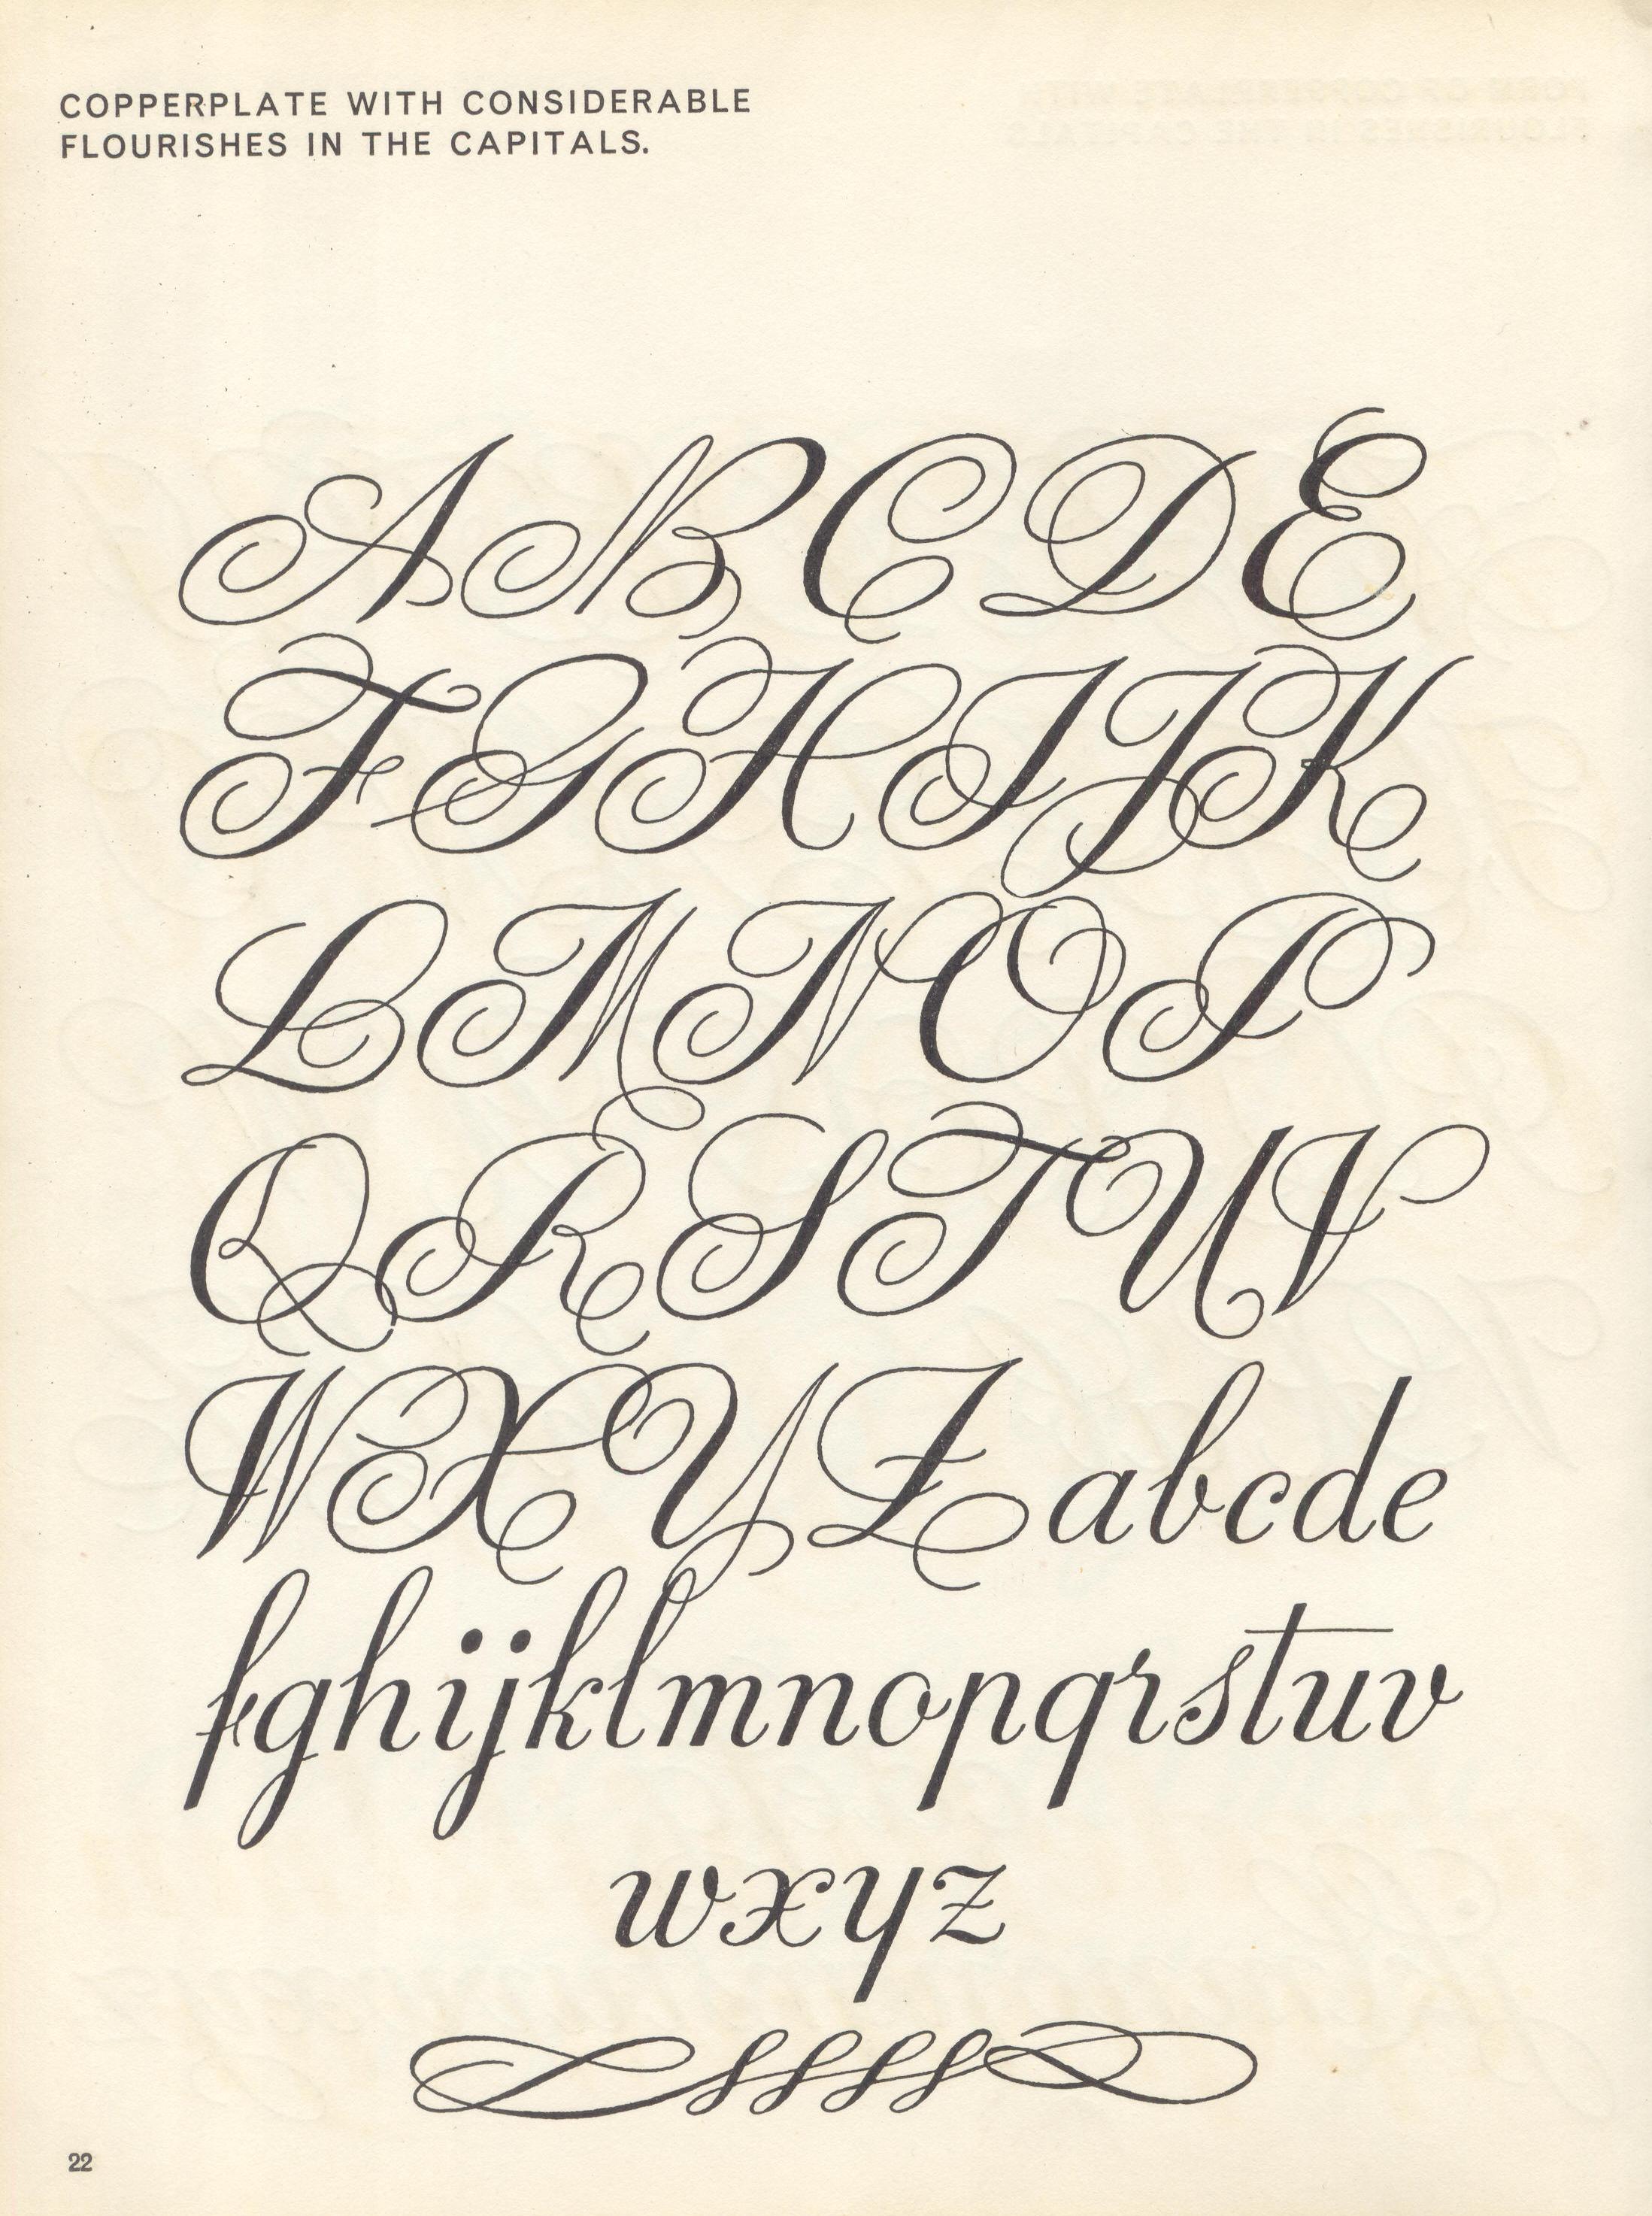 COPPERPLATE WITH CONSIDERABLE
FLOURISHES IN THE CAPITALS.
A B C D E
F G H I J K
L M N O P
Q R S T U V
W X Y Z a b c d e
f g h i j k l m n o p q r s t u v
w x y z
22